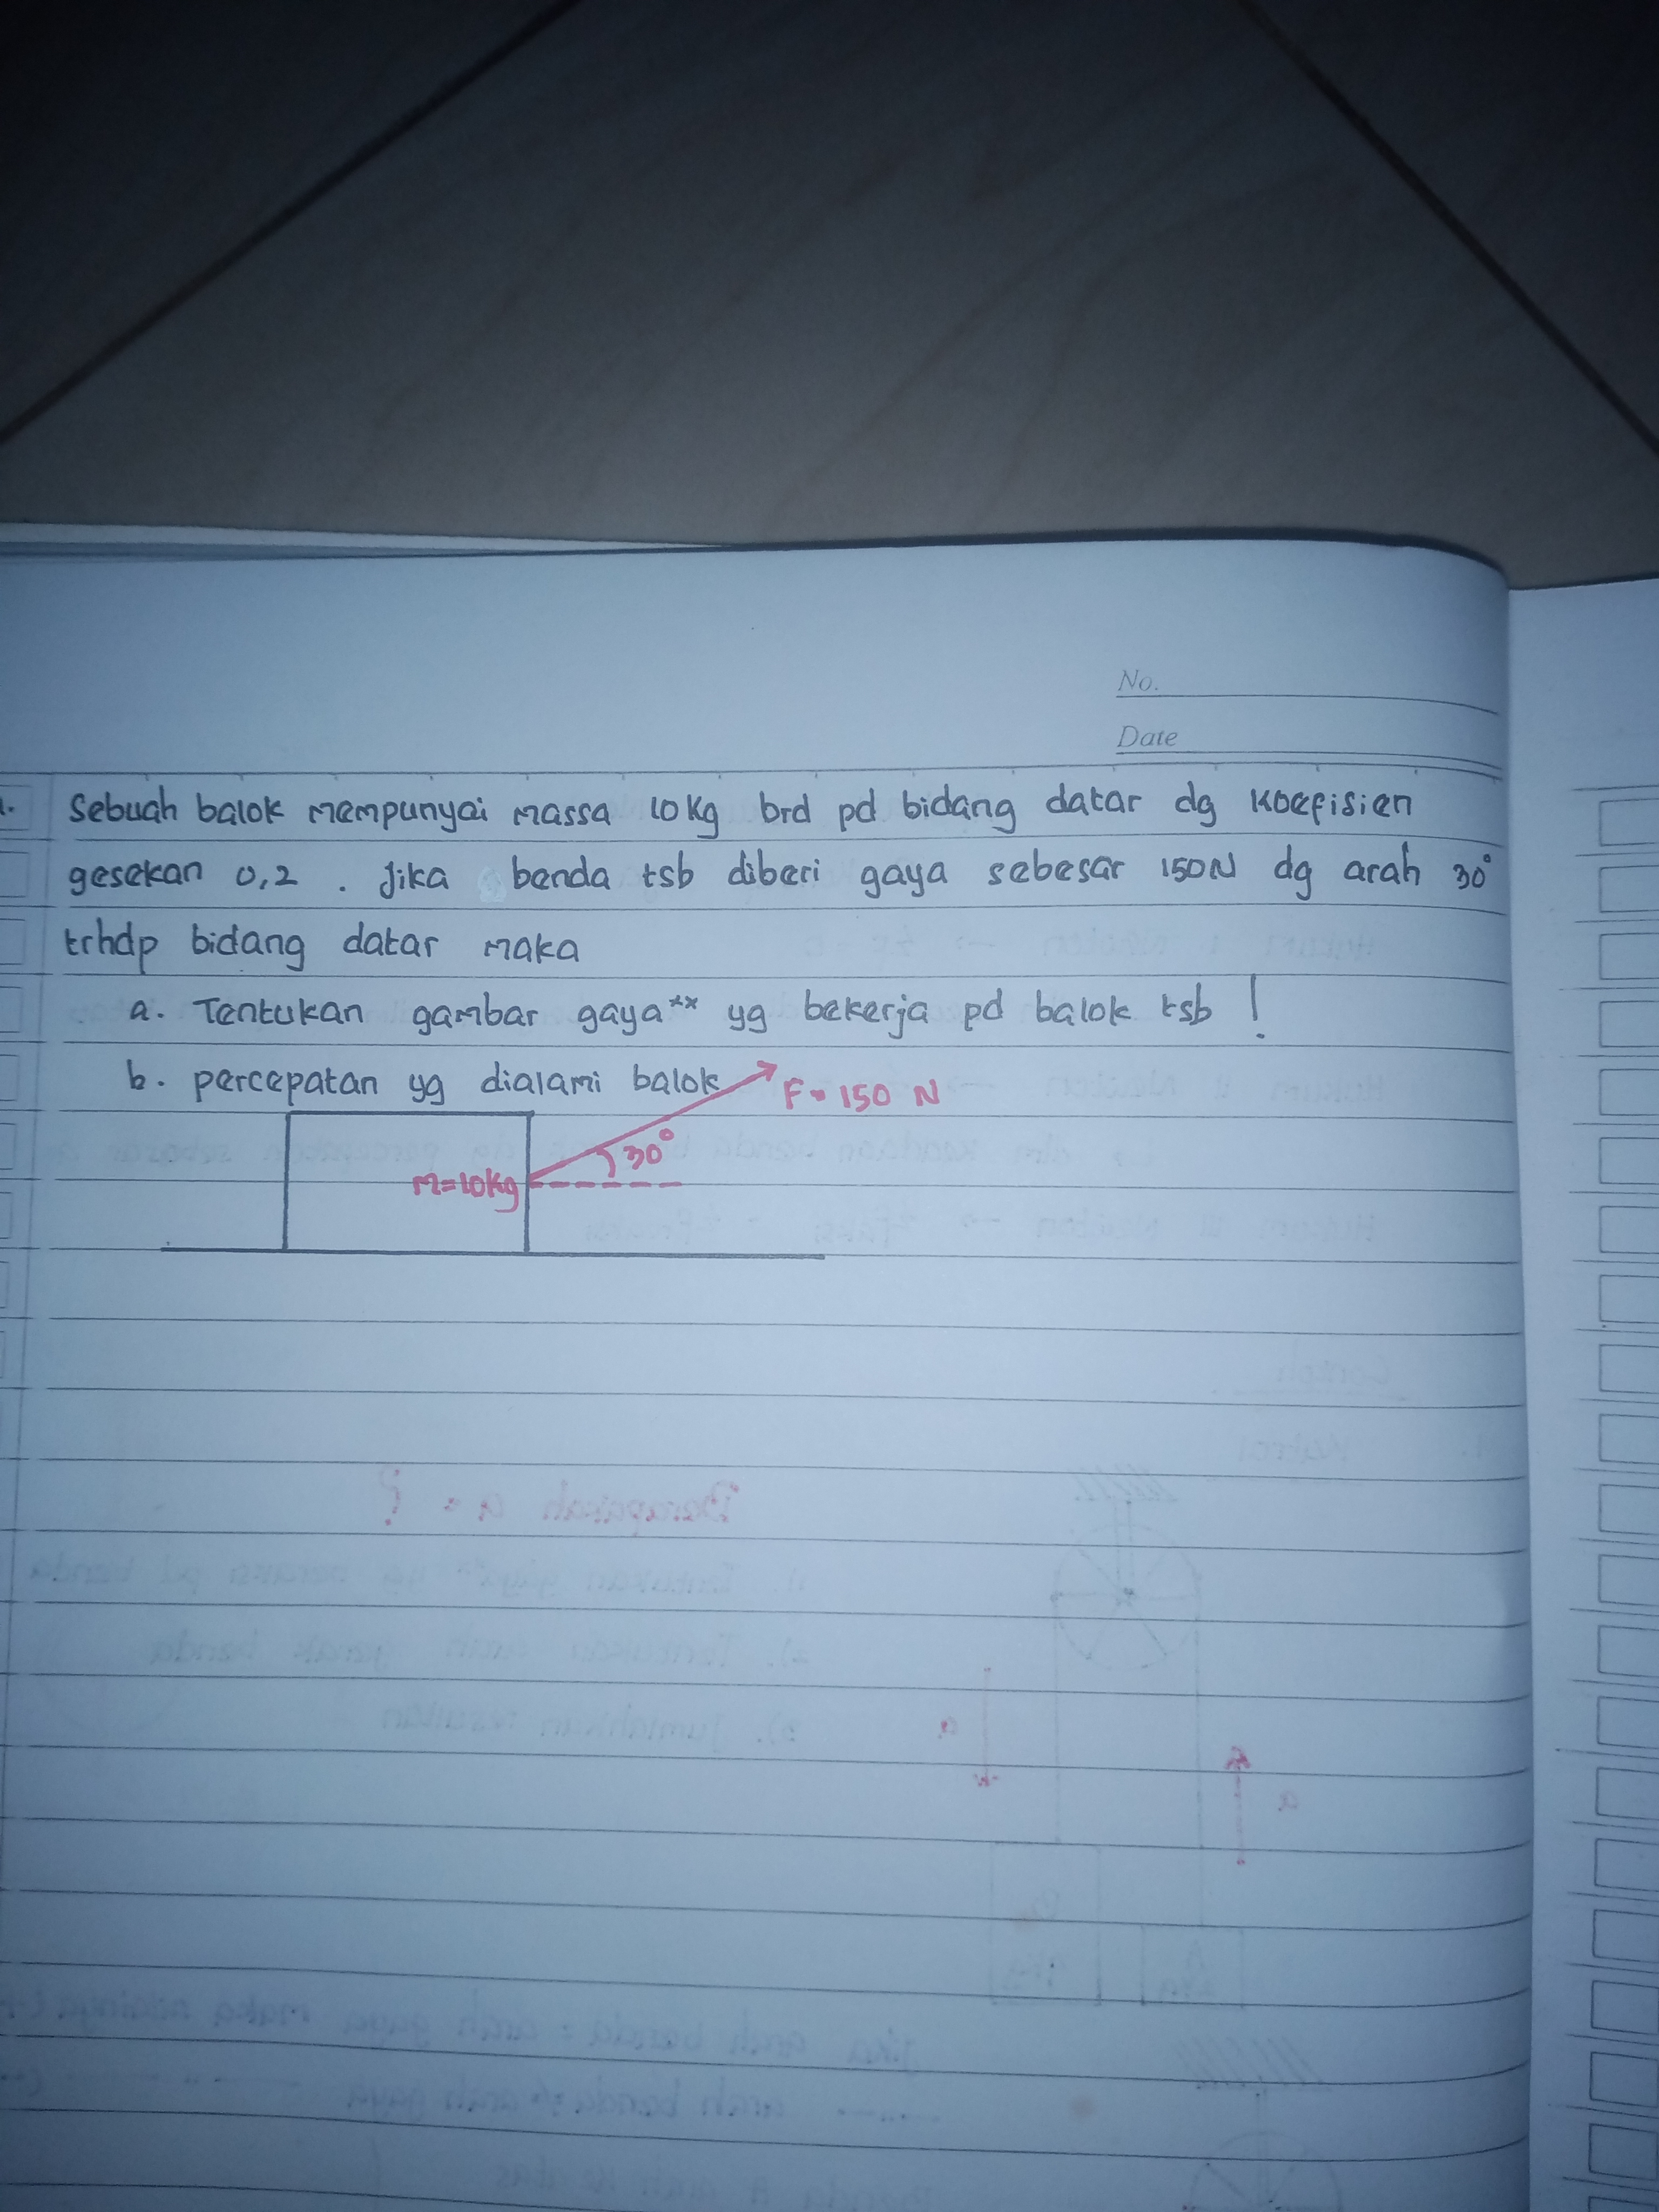 No.
Date
1. Sebuah balok mempunyai massa 10 Kg brd pd bidang datar dg koefisien
gesekan 0,2 . Jika benda tsb diberi gaya sebesar 150N dg arah 30°
trhdp bidang datar maka
a. Tentukan gambar gaya** yg bekerja pd balok tsb !
b. percepatan yg dialami balok
F = 150 N
30°
m=10Kg